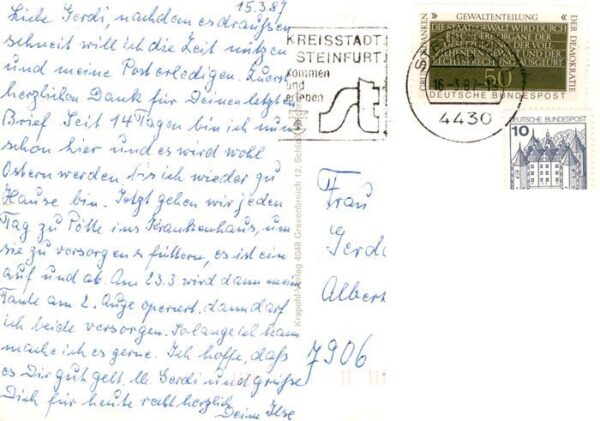 15.3.87
Liebe Gerdi, nachdem es draußen
schneit will ich die Zeit nützen
und meine Post erledigen. Zuerst
herzlichen Dank für Deinen letzten
Brief. Seit 14 Tagen bin ich nun
schon hier und es wird wohl
Ostern werden bis ich wieder zu
Hause bin. Jetzt gehen wir jeden
Tag zu Pötte ins Krankenhaus, um
sie zu versorgen & füttern, es ist ein
auf und ab. Am 23.3 wird dann meine
Tante am 2. Auge operiert, dann darf
ich beide versorgen. Solange ich kann
mache ich es gerne. Ich hoffe, daß
es Dir gut geht, lb. Gerdi und grüße
Dich für heute recht herzlich
Deine Ilse
KREISSTADT
STEINFURT
kommen
und
erleben
st
4430
GRUNDGEDANKEN DER DEMOKRATIE
» GEWALTENTEILUNG «
DIE STAATSGEWALT WIRD DURCH
BESONDERE ORGANE DER
GESETZGEBUNG, DER VOLL-
ZIEHENDEN GEWALT UND DER
RECHTSPRECHUNG AUSGEÜBT
50
DEUTSCHE BUNDESPOST
10
DEUTSCHE BUNDESPOST
Krapohl-Verlag 4048 Grevenbroich 12,
Frau
Gerdi
Albert
7906